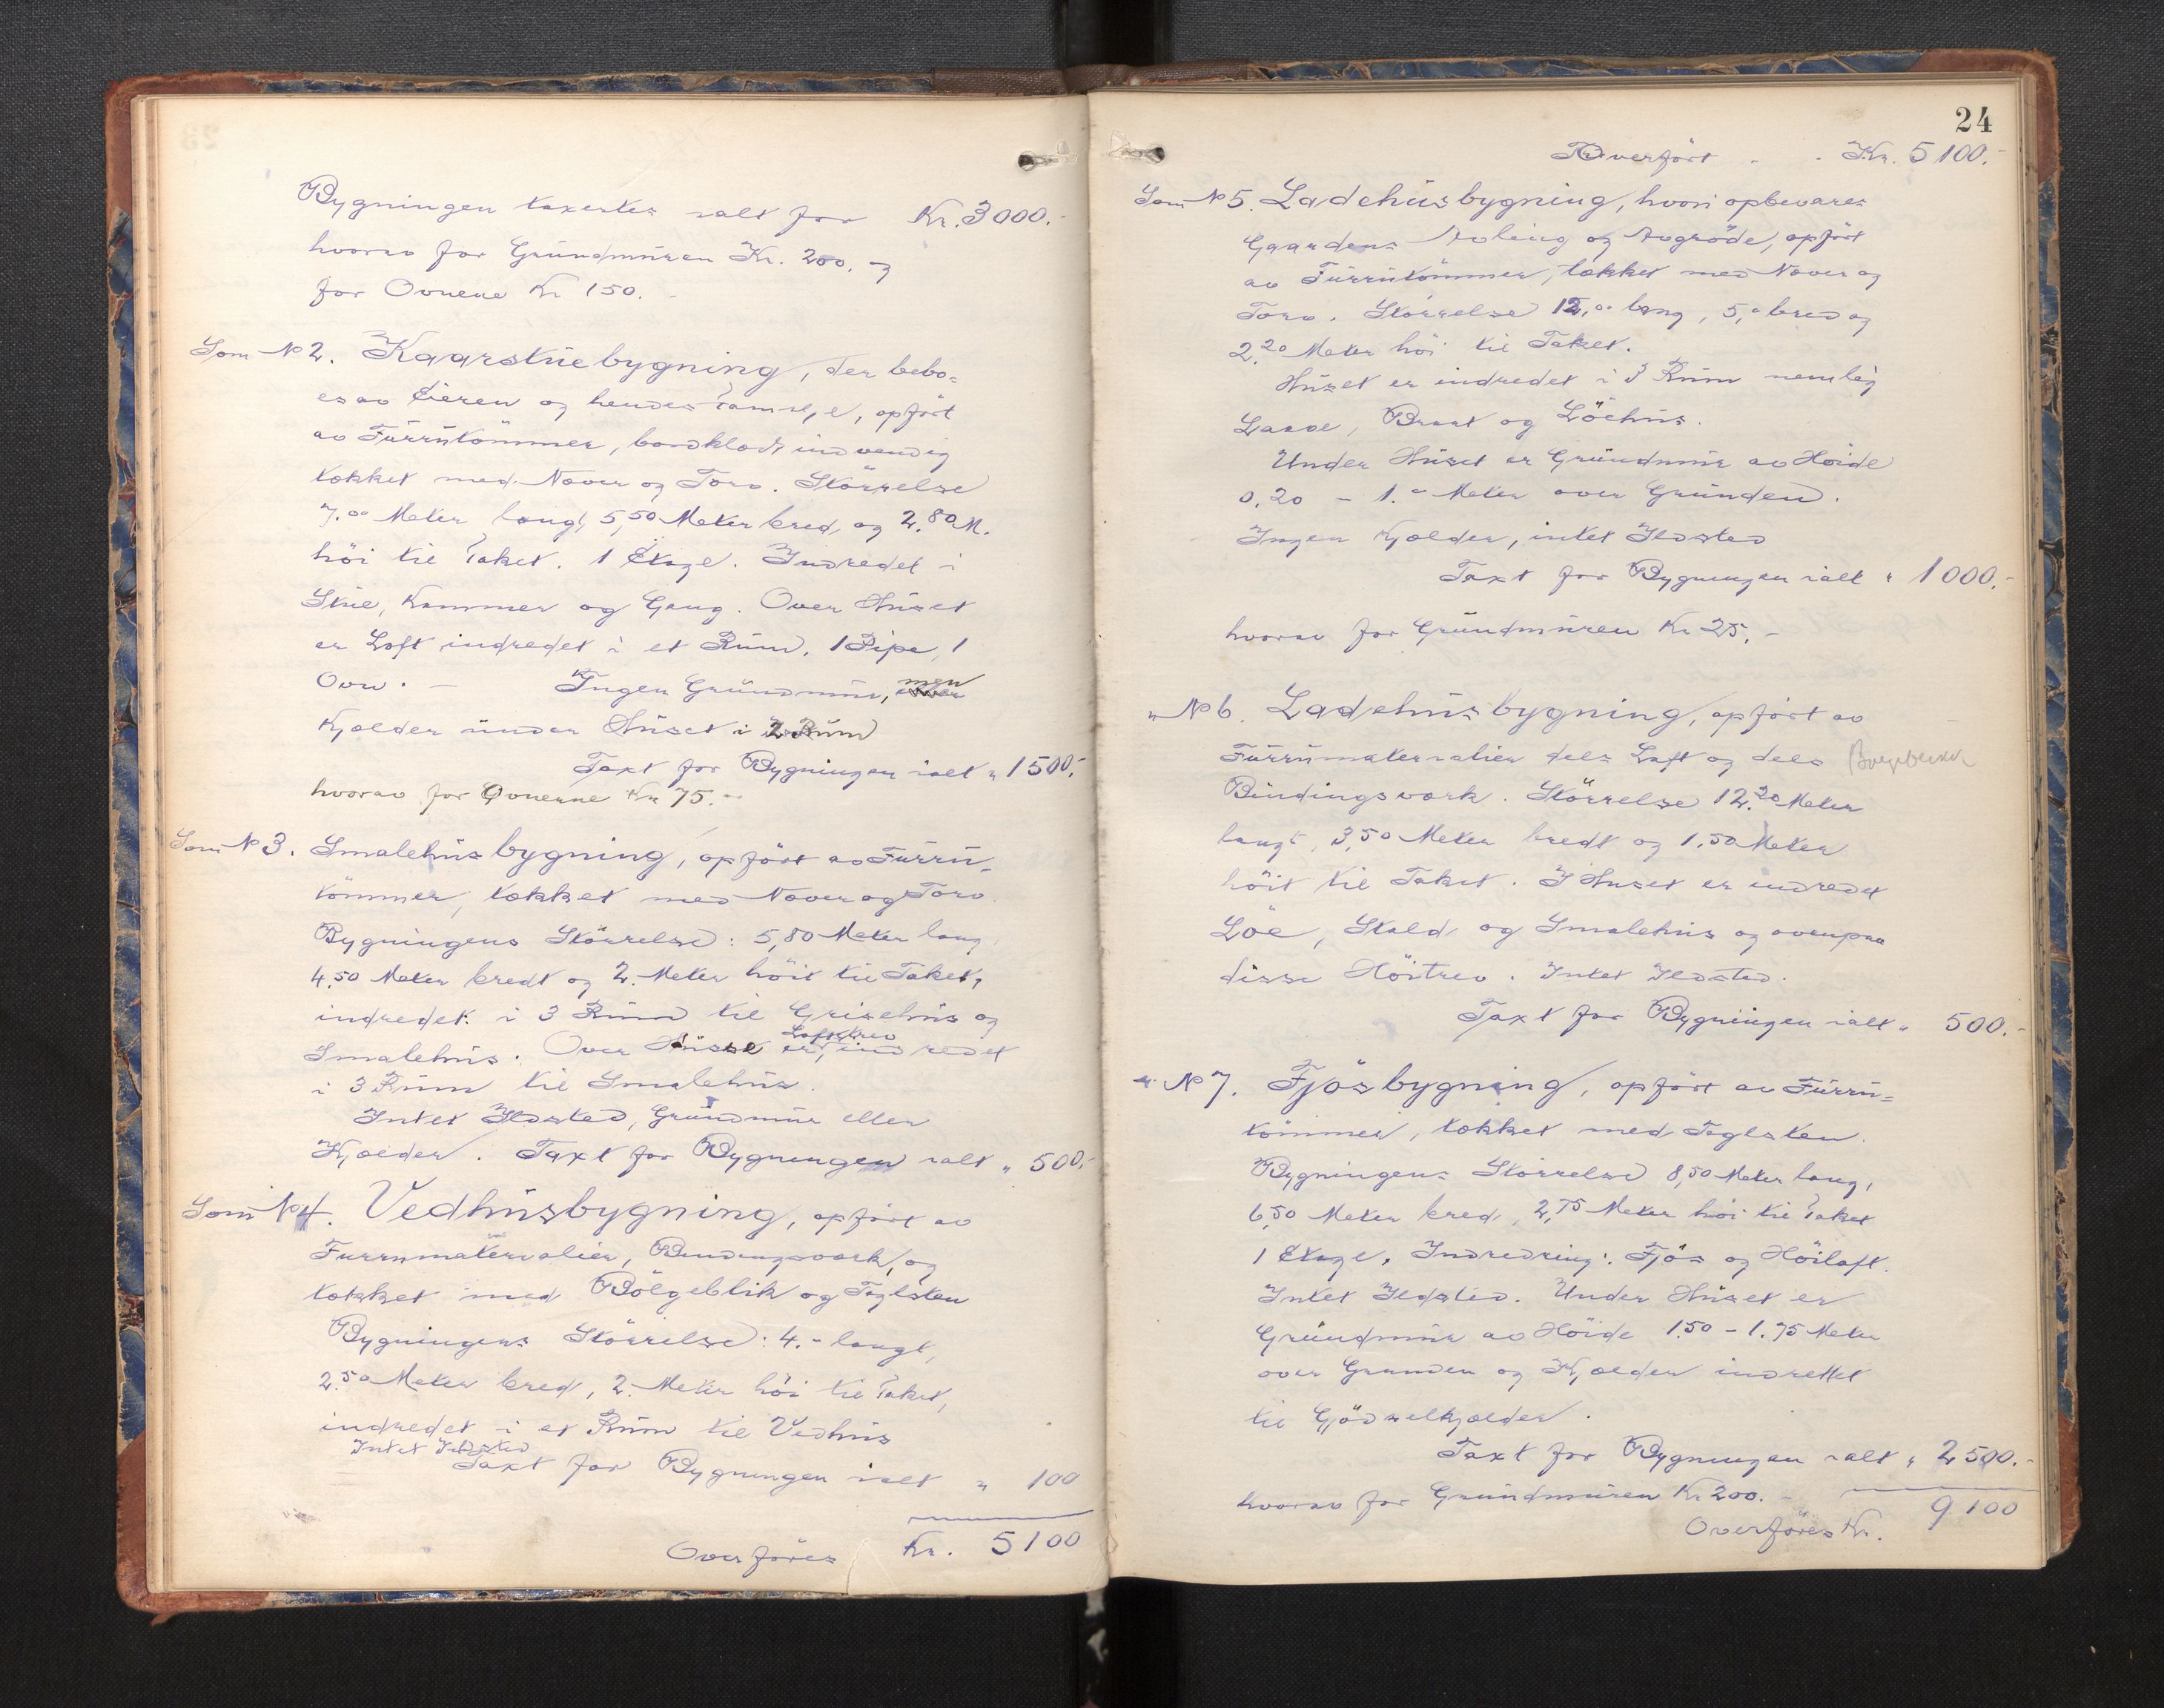 Bygningen taxertes ialt for Kr. 3000.-
hvorav for Grundmuren Kr. 200. og
for Ovnene Kr 150. -
Som No 2. Kaarstuebygning, der bebo=
es av Eieren og hendes Familje, opført
av Furrutömmer, bordklædt indvendig
tækket med Næver og Torv. Störrelse
7.00 Meter langt, 5,50 Meter bred, og 2.80 M.
höi til Taket. 1 Etage. Indredet i
Stue, Kammer og Gang. Over Huset
er Loft indredet i et Rum. 1 Pipe, 1
Ovn. - Ingen Grundmur, men
Kjælder under Huset i 2 Rum
Taxt for Bygningen ialt " 1500.-
hvorav for Ovnerne Kr 75.-
Som No 3. Smalehusbygning, opfört av Furru=
tömmer, tækket med Næver og Torv.
Bygningens Störrelse: 5,80 Meter lang,
4.50 Meter bredt og 2.- Meter höit til Taket,
indredet i 3 Rum til Grisehus og
Smalehus. Over Huset er Loftstrev indredet
i 3 Rum til Smalehus.
Intet Ildsted, Grundmur eller
Kjælder. Taxt for Bygningen ialt " 500.-
Som No 4. Vedhusbygning, opfört av
Furrumaterialier, Bindingsværk, og
tækket med Bölgeblik og Teglsten
Bygningens Störrelse: 4.- langt,
2.50 Meter bred, 2.- Meter höi til Taket,
indredet i et Rum til Vedhus
Intet Ildsted
Taxt for Bygningen ialt " 100
Overföres Kr. 5100
24
Overfört . . Kr. 5100.-
Som No 5. Ladehusbygning, hvori opbevares
Gaardens Avling og Avgröde, opfört
av Furrutömmer, tækket med Næver og
Torv. Störrelse 12,00 lang, 5,0 bred og
2.20 Meter höi til Taket.
Huset er indredet i 3 Rum nemlig
Laave, Braat og Löehus.
Under Huset er Grundmur av Höide
0.20 - 1.0 Meter over Grunden.
Ingen Kjælder, intet Ildsted
Taxt for Bygningen ialt " 1000.-
hvorav for Grundmuren Kr 25.-
" No 6. Ladehusbygning, opfört av
Furrumaterialier dels Laft og dels
Bindingsværk. Störrelse 12.20 Meter
langt, 3,50 Meter bredt og 1.50 Meter
höit til Taket. I Huset er indredet
Löe, Stald og Smalehus og ovenpaa
disse Höitrev. Intet Ildsted.
Taxt for Bygningen ialt " 500.-
" No 7. Fjösbygning, opfört av Furru=
tömmer, tækket med Teglsten.
Bygningens Störrelse 8,50 Meter lang,
6,50 Meter bred, 2,75 Meter höi til Taket
1 Etage. Indredning: Fjös og Höiloft.
Intet Ildsted. Under Huset er
Grundmur av Höide 1.50 - 1.75 Meter
over Grunden og Kjælder indrettet
til Gjödselkjælder.
Taxt for Bygningen ialt " 2500.-
hvorav for Grundmuren Kr 200.-
Overföres Kr. 9100